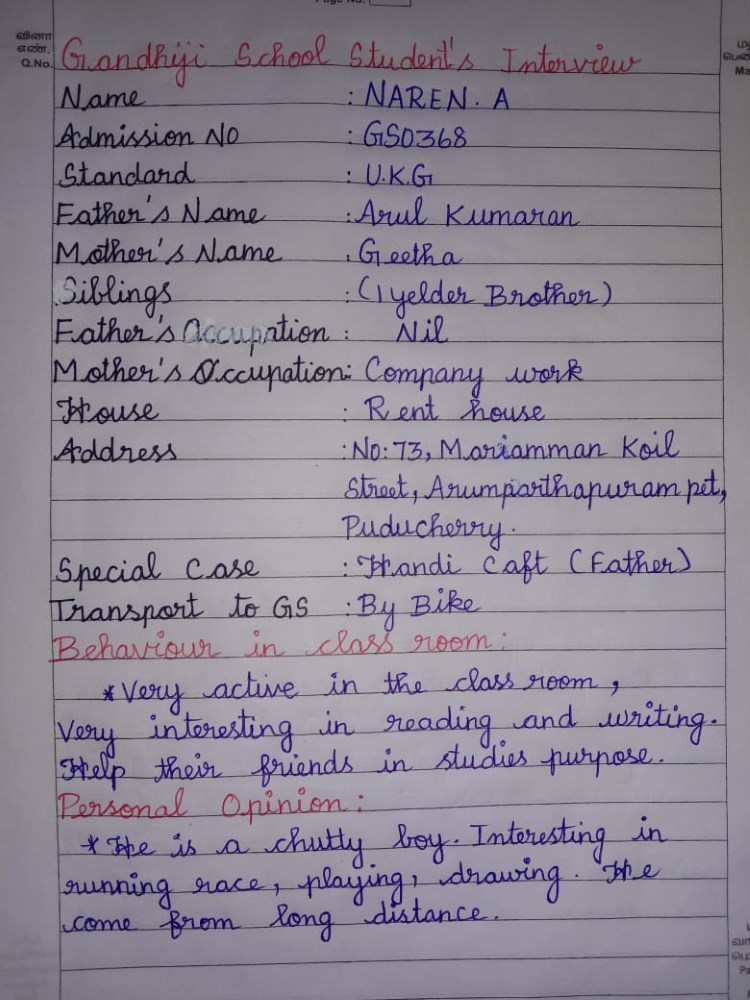 Page No.
வினா
எண்.
Q.No.
Gandhiji School Student's Interview
Name : NAREN. A
Admission No : GS0368
Standard : U.K.G
Father's Name : Arul Kumaran
Mother's Name : Geetha
Siblings : (1 yelder Brother)
Father's Occupation : Nil
Mother's Occupation: Company work
House : Rent house
Address : No: 73, Mariamman Koil
Street, Arumparthapuram pet,
Puducherry.
Special Case : Handi Caft (Father)
Transport to GS : By Bike
Behaviour in class room:
* Very active in the class room,
Very interesting in reading and writing.
Help their friends in studies purpose.
Personal Opinion:
* He is a chutty boy. Interesting in
running race, playing, drawing. He
come from long distance.